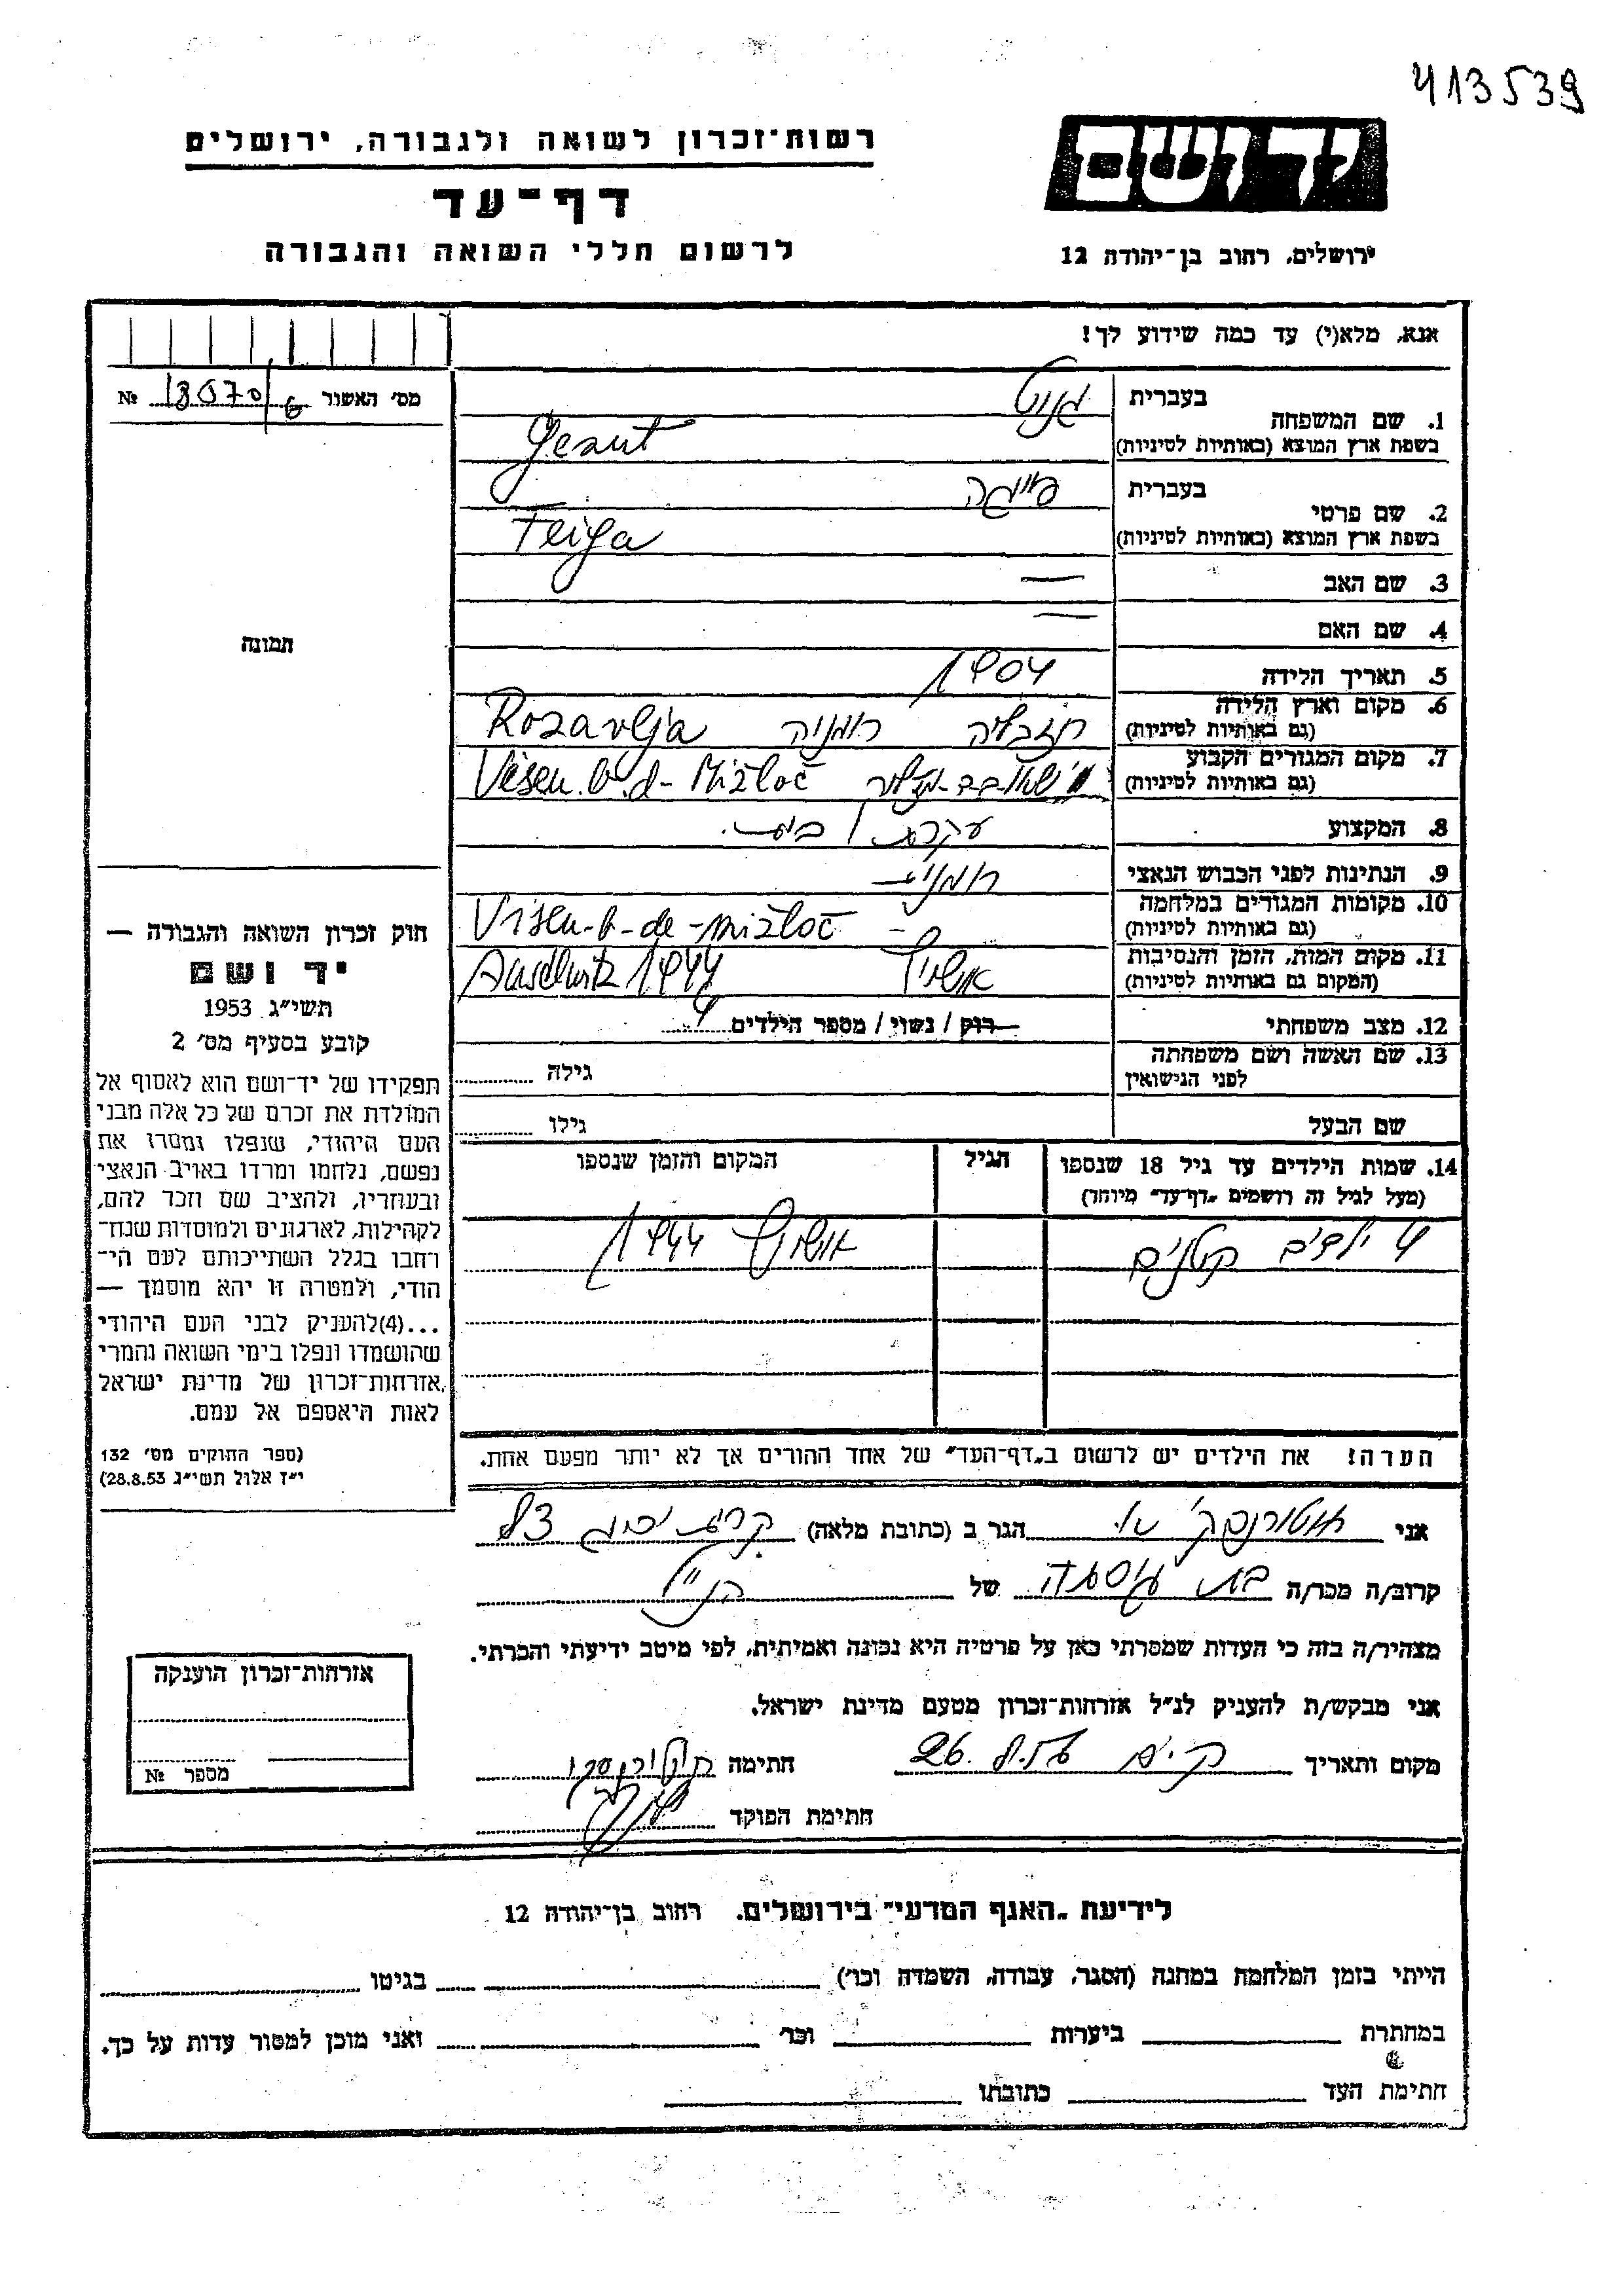 413539
יד ושם
ירושלים, רחוב בן־יהודה 12
רשות־זכרון לשואה ולגבורה, ירושלים
דף־עד
לרשום חללי השואה והגבורה
אנא, מלא(י) עד כמה שידוע לך!
מס׳ האשור 18070/6 №
1. שם המשפחה
בעברית
בשפת ארץ המוצא (באותיות לטיניות)
2. שם פרטי
בעברית פייגה
בשפת ארץ המוצא (באותיות לטיניות) Feiga
3. שם האב —
4. שם האם —
5. תאריך הלידה 1904
6. מקום וארץ הלידה רוזבליה רומניה Rozavlja
(גם באותיות לטיניות)
7. מקום המגורים הקבוע Vèseu.b.d-Mižloč
(גם באותיות לטיניות)
8. המקצוע עקרת / בית.
9. הנתינות לפני הכבוש הנאצי רומנית
10. מקומות המגורים במלחמה Viseu-b-de-mižloč
(גם באותיות לטיניות)
11. מקום המות, הזמן והנסיבות אושויץ Auschwitz 1944
(המקום גם באותיות לטיניות)
12. מצב משפחתי רוק / נשוי / מספר הילדים 4
13. שם האשה ושם משפחתה גילה
לפני הנישואין
שם הבעל גילו
14. שמות הילדים עד גיל 18 שנספו הגיל המקום והזמן שנספו
(מעל לגיל זה רושמים „דף־עד״ מיוחד)
4 ילדים קטנים אושויץ 1944
הערה! את הילדים יש לרשום ב„דף־העד״ של אחד ההורים אך לא יותר מפעם אחת.
תמונה
חוק זכרון השואה והגבורה —
יד ושם
תשי״ג 1953
קובע בסעיף מס׳ 2
תפקידו של יד־ושם הוא לאסוף אל
המולדת את זכרם של כל אלה מבני
העם היהודי, שנפלו ומסרו את
נפשם, נלחמו ומרדו באויב הנאצי
ובעוזריו, ולהציב שם וזכר להם,
לקהילות, לארגונים ולמוסדות שנח־
רחבו בגלל השתייכותם לעם הי־
הודי, ולמטרה זו יהא מוסמך —
...(4)להעניק לבני העם היהודי
שהושמדו ונפלו בימי השואה והמרי
אזרחות־זכרון של מדינת ישראל
לאות היאספם אל עמם.
(ספר החוקים מס׳ 132
י״ז אלול תשי״ג 28.8.53)
אני הגר ב (כתובת מלאה)
קרוב/ה מכר/ה בת של הנ״ל
מצהיר/ה בזה כי העדות שמסרתי כאן על פרטיה היא נכונה ואמיתית, לפי מיטב ידיעתי והכרתי.
אני מבקש/ת להעניק לנ״ל אזרחות־זכרון מטעם מדינת ישראל.
מקום ותאריך חתימה
חתימת הפוקד
אזרחות־זכרון הוענקה
מספר №
לידיעת „האגף המדעי״ בירושלים, רחוב בן־יהודה 12
הייתי בזמן המלחמה במחנה (הסגר, עבודה, השמדה וכר׳) בגיטו
במחתרת ביערות וכר׳ ואני מוכן למסור עדות על כך.
חתימת העד כתובתו